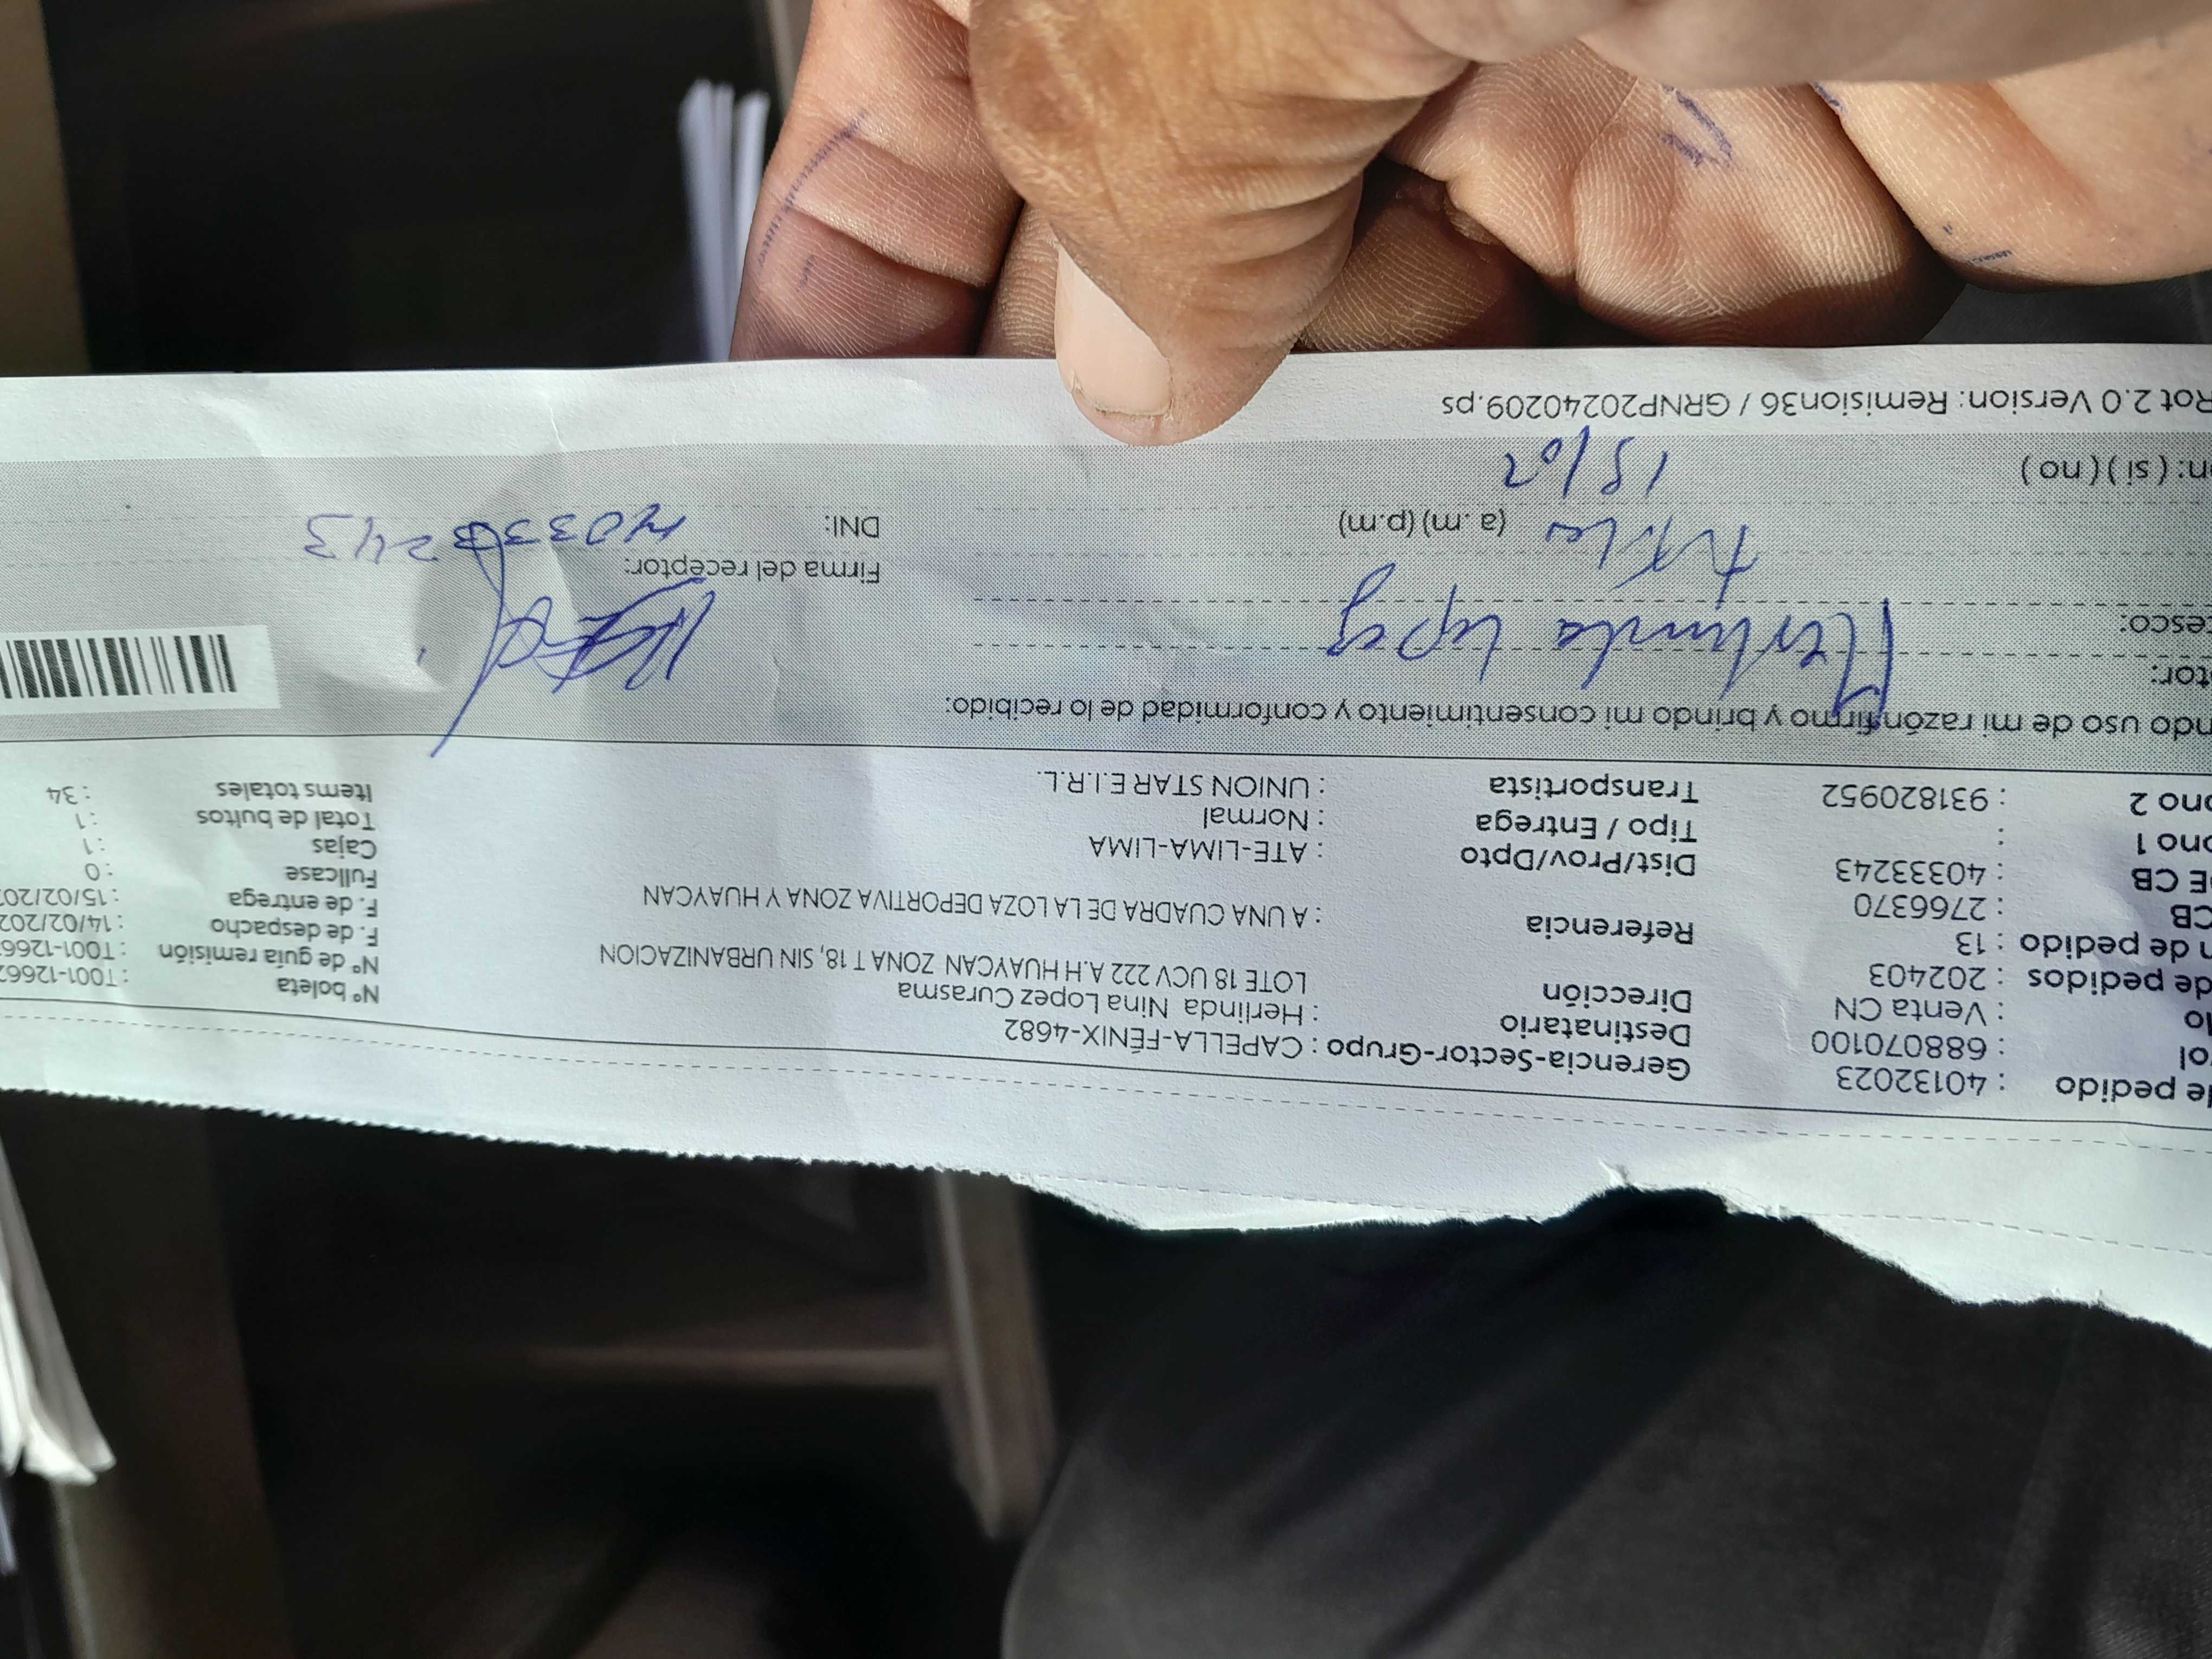 de pedido : 40132023 Gerencia-Sector-Grupo : CAPELLA-FÉNIX-4682
ol : 688070100 Destinatario : Herlinda Nina Lopez Curasma Nº boleta : T001-1266
lo : Venta CN Dirección LOTE 18 UCV 222 A.H HUAYCAN ZONA T 18, SIN URBANIZACION Nº de guía remisión : T001-1266
de pedidos : 202403 F. de despacho : 14/02/202
n de pedido : 13 Referencia : A UNA CUADRA DE LA LOZA DEPORTIVA ZONA Y HUAYCAN F. de entrega : 15/02/202
CB : 2766370 Fullcase : 0
E CB : 40333243 Dist/Prov/Dpto : ATE-LIMA-LIMA Cajas : 1
ono 1 : Tipo / Entrega : Normal Total de bultos : 1
ono 2 : 931820952 Transportista : UNION STAR E.I.R.L. Items totales : 34
ndo uso de mi razón firmo y brindo mi consentimiento y conformidad de lo recibido:
tor: Herlinda Lopez
esco: Firma del receptor:
(a. m) (p.m) DNI: 40333243
n: ( si ) ( no ) 15/02
Rot 2.0 Version: Remision36 / GRNP20240209.ps